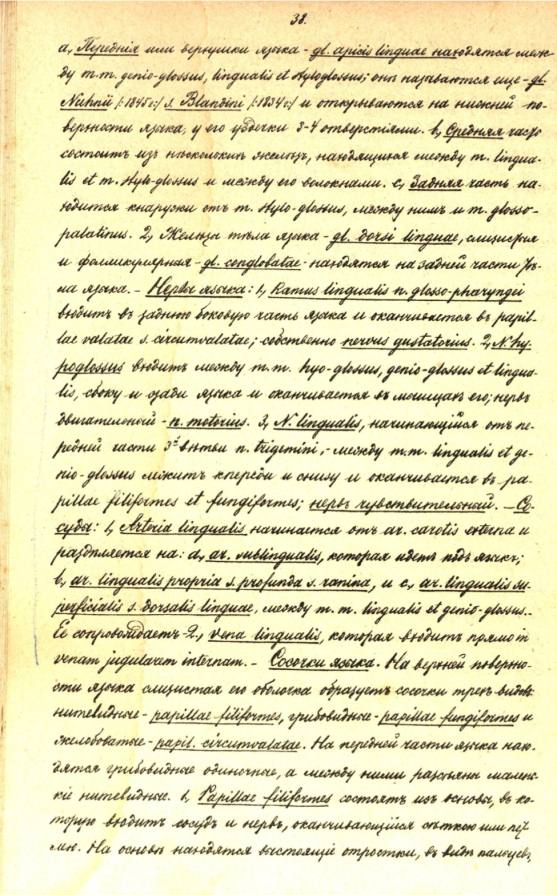 38.
а, Переднія или верхушки языка - gl. apicis linguae находятся меж-
ду m.m. genio-glossus, lingualis et hyloglossus; онѣ называются еще - gl.
Nuhnii /:1845г:/ s. Blandini /:1834г:/ и открываются на нижней по-
верхности языка, у его уздечки 3-4 отверстіями. b, Средняя часть
состоитъ изъ нѣсколькихъ железъ, находящихся между m. lingua-
lis et m. stylo-glossus и между его волокнами. c, Задняя часть на-
ходится кнаружи отъ m. stylo-glossus, между нимъ и m. glosso-
palatinus. 2, Железы тѣла языка - gl. dorsi linguae, слизистыя
и фолликулярныя - gl. conglobatae - находятся на задней части тѣ-
ла языка. - Нервы языка: 1, Ramus lingualis n. glosso-pharyngei
входитъ въ заднюю боковую часть языка и оканчивается въ papil-
lae valatae s. circumvalatae; собственно nervus gustatorius. 2, N. hy-
poglossus входитъ между m.m. hyo-glossus, genio-glossus et lingua-
lis, сбоку и сзади языка и оканчивается въ мышцахъ его; нервъ
двигательный - n. motorius. 3, N. lingualis, начинающійся отъ пе-
редней части 3й вѣтви n. trigemini, - между m.m. lingualis et ge-
nio-glossus лежитъ кпереди и снизу и оканчивается въ pa-
pillae filiformes et fungiformes; нервъ чувствительный. - Со-
суды: 1, Arteria lingualis начинается отъ ar. carotis externa и
раздѣляется на: a, ar. sublingualis, которая идетъ подъ языкъ;
b, ar. lingualis propria s. profunda s. ranina, и c, ar. lingualis su-
perficialis s. dorsalis linguae, между m.m. lingualis et genio-glossus. -
Её сопровождаетъ 2, vena lingualis, которая входитъ прямо in
venam jugularam internam. - Сосочки языка. На верхней поверхно-
сти языка слизистая его оболочка образуетъ сосочки трехъ видовъ:
нитевидные - papillae filiformes, грибовидные - papillae fungiformes и
желобоватые - papil. circumvalatae. На передней части языка нахо-
дятся грибовидные одиночные, а между ними разсѣяны малень-
кіе нитевидные. 1, Papillae filiformes состоятъ изъ основы, въ ко-
торую входитъ сосудъ и нервъ, оканчивающійся сѣткою или пет-
лею. На основѣ находятся выстоящіе отростки, въ видѣ пальцевъ,